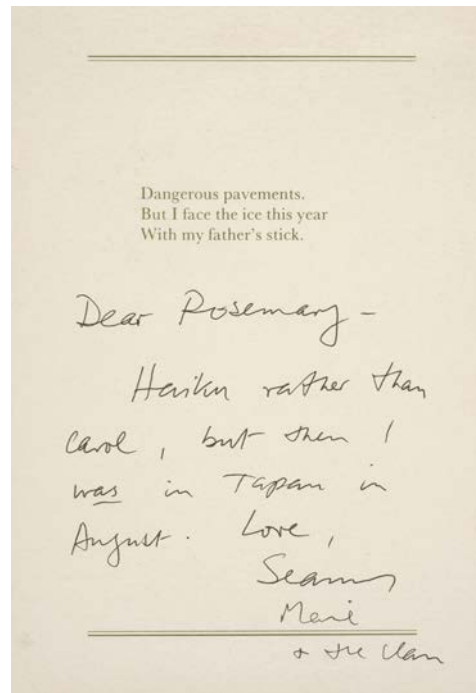 Dangerous pavements.
But I face the ice this year
With my father's stick.
Dear Rosemary –
Haiku rather than
carol, but then I
was in Japan in
August. Love,
Seamus
Marie
+ the clan